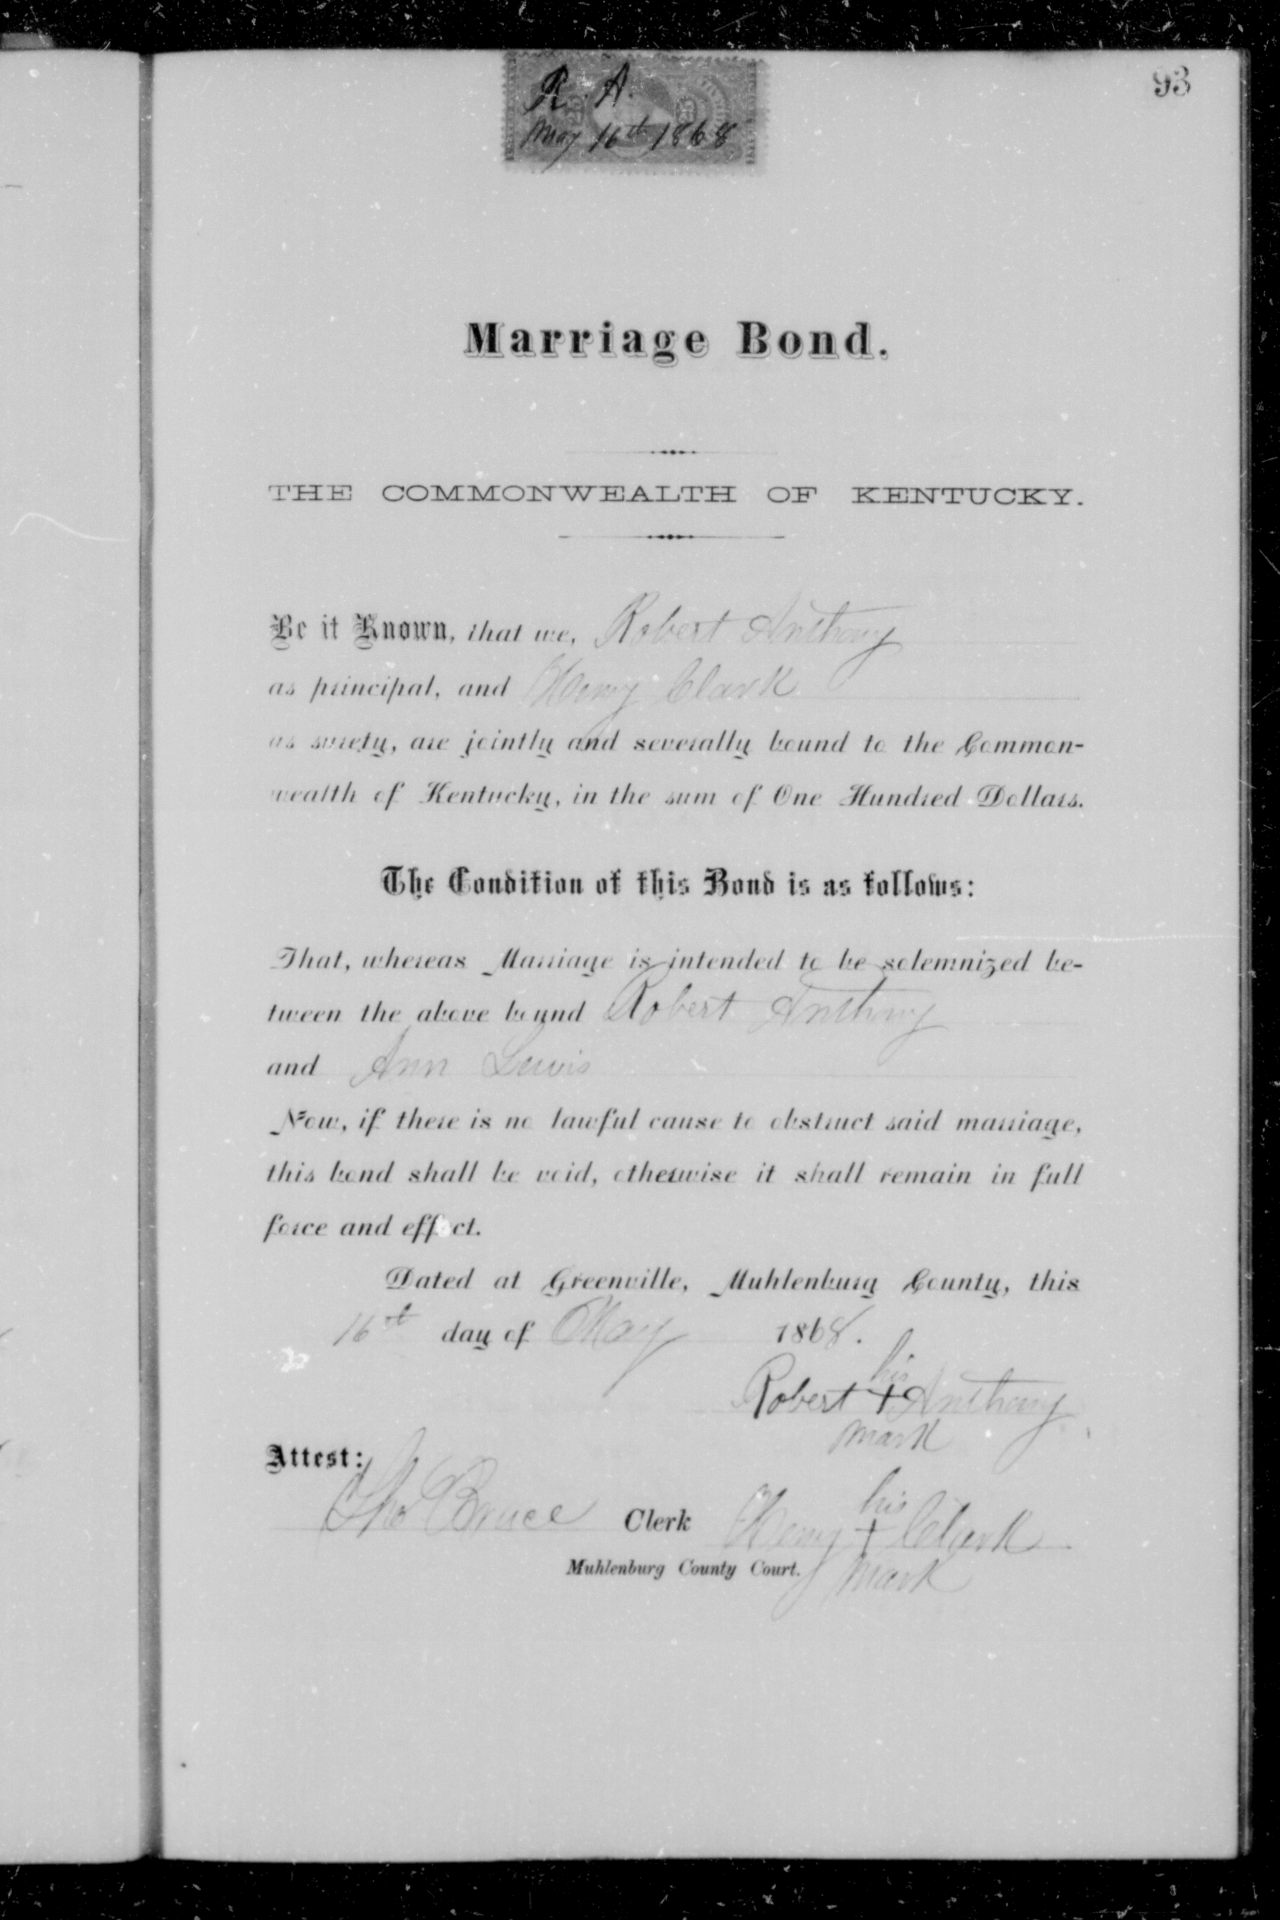 93
R. A.
May 16th 1868
Marriage Bond.
THE COMMONWEALTH OF KENTUCKY.
Be it Known, that we, Robert Anthony
as principal, and Henry Clark
as surety, are jointly and severally bound to the Common-
wealth of Kentucky, in the sum of One Hundred Dollars.
The Condition of this Bond is as follows:
That, whereas Marriage is intended to be solemnized be-
tween the above bound Robert Anthony
and Ann Lewis
Now, if there is no lawful cause to obstruct said marriage,
this bond shall be void, otherwise it shall remain in full
force and effect.
Dated at Greenville, Muhlenburg County, this
16th day of May 1868.
his
Robert + Anthony
mark
Attest:
his
Tho Bruce Clerk Henry + Clark
Muhlenburg County Court. mark